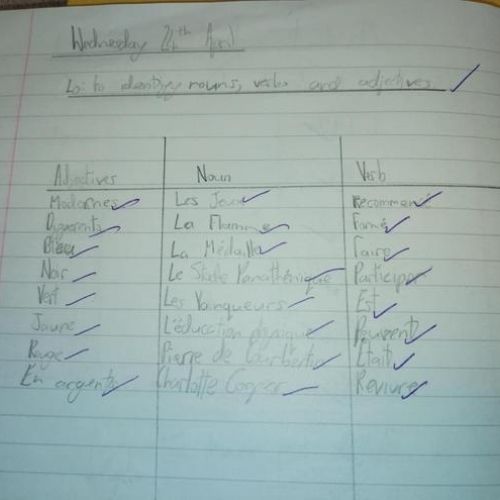 Wednesday 24th April
Lo: to identify nouns, verbs and adjectives
Adjectives Noun Verb
Modernes Les Jeux Recommencé
Différents La Flamme Formé
Bleu La Médaille Faire
Noir Le Stade Panathénique Participer
Vert Les Vanqueurs Est
Jaune L'éducation physique Peuvent
Rouge Pierre de Courbertin Etait
En argent Charlotte Cooper Revivre